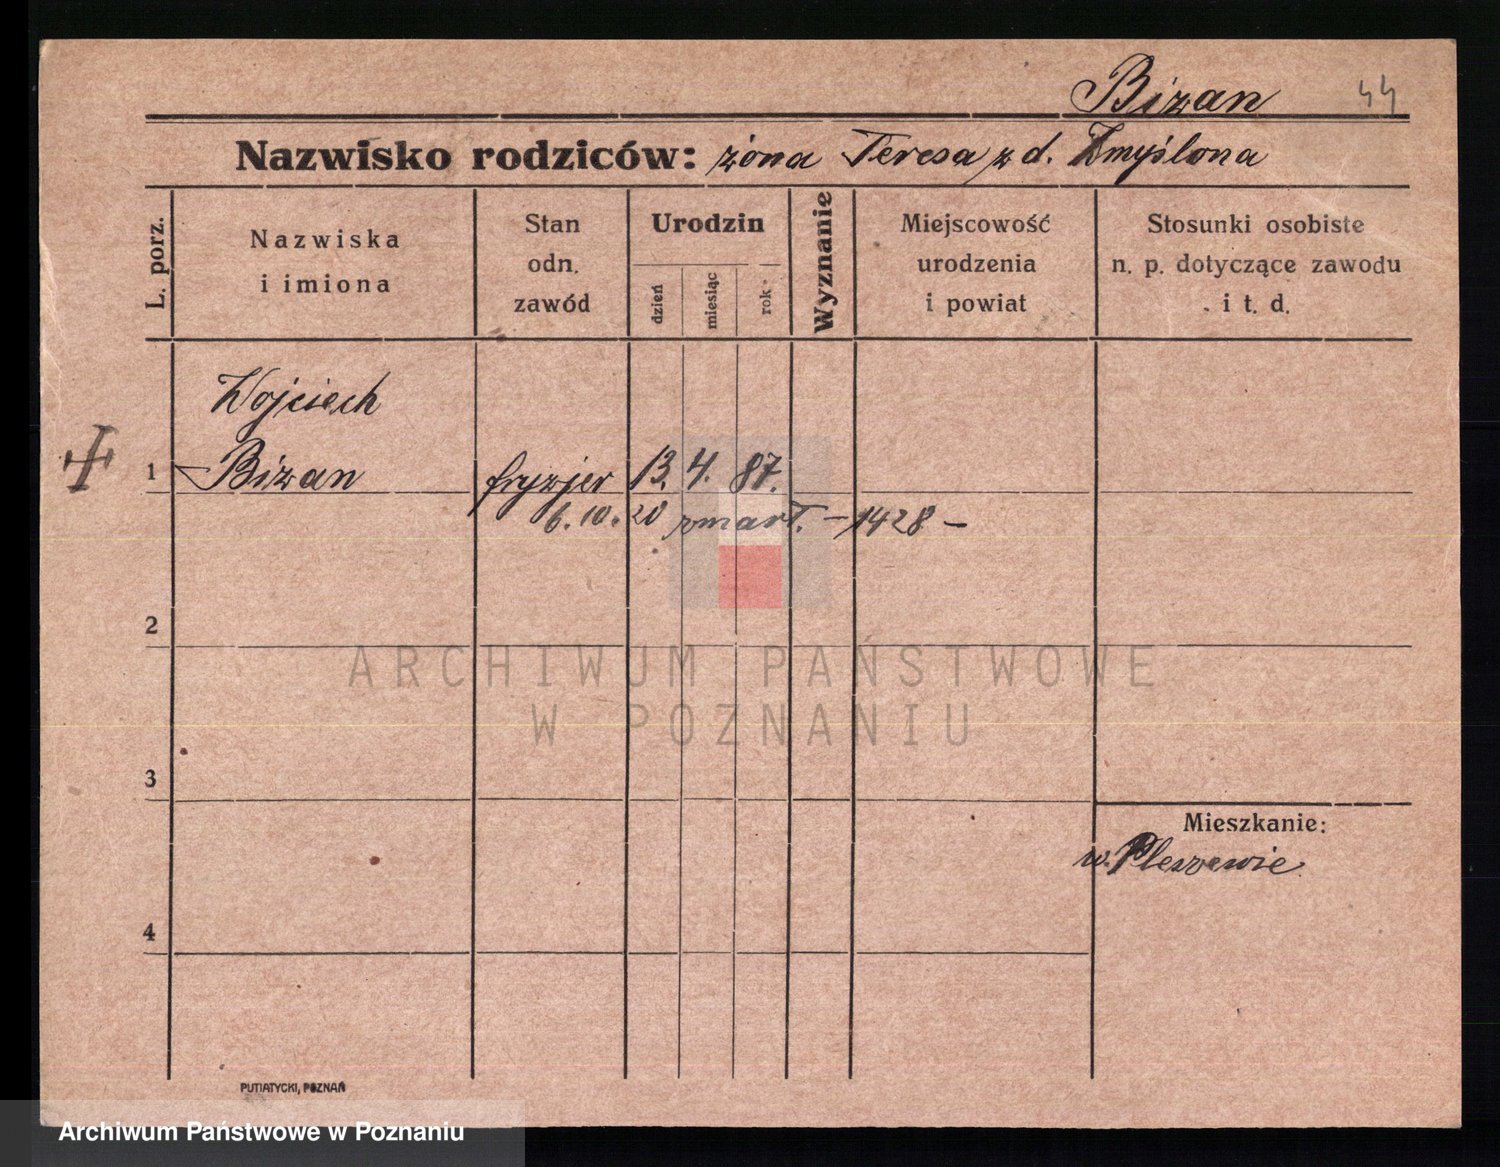 Bizan 44
Nazwisko rodziców: żona Teresa z d. Zmyślona
L. porz.
Nazwiska
i imiona
Stan
odn.
zawód
Urodzin
dzień
miesiąc
rok
Wyznanie
Miejscowość
urodzenia
i powiat
Stosunki osobiste
n. p. dotyczące zawodu
i t. d.
Wojciech
1 Bizan fryzjer 13. 4. 87.
6. 10. 20 zmarł. – 1428 –
2
ARCHIWUM PAŃSTWOWE
W POZNANIU
3
Mieszkanie:
w. Pleszewie
4
PUTIATYCKI, POZNAŃ
Archiwum Państwowe w Poznaniu